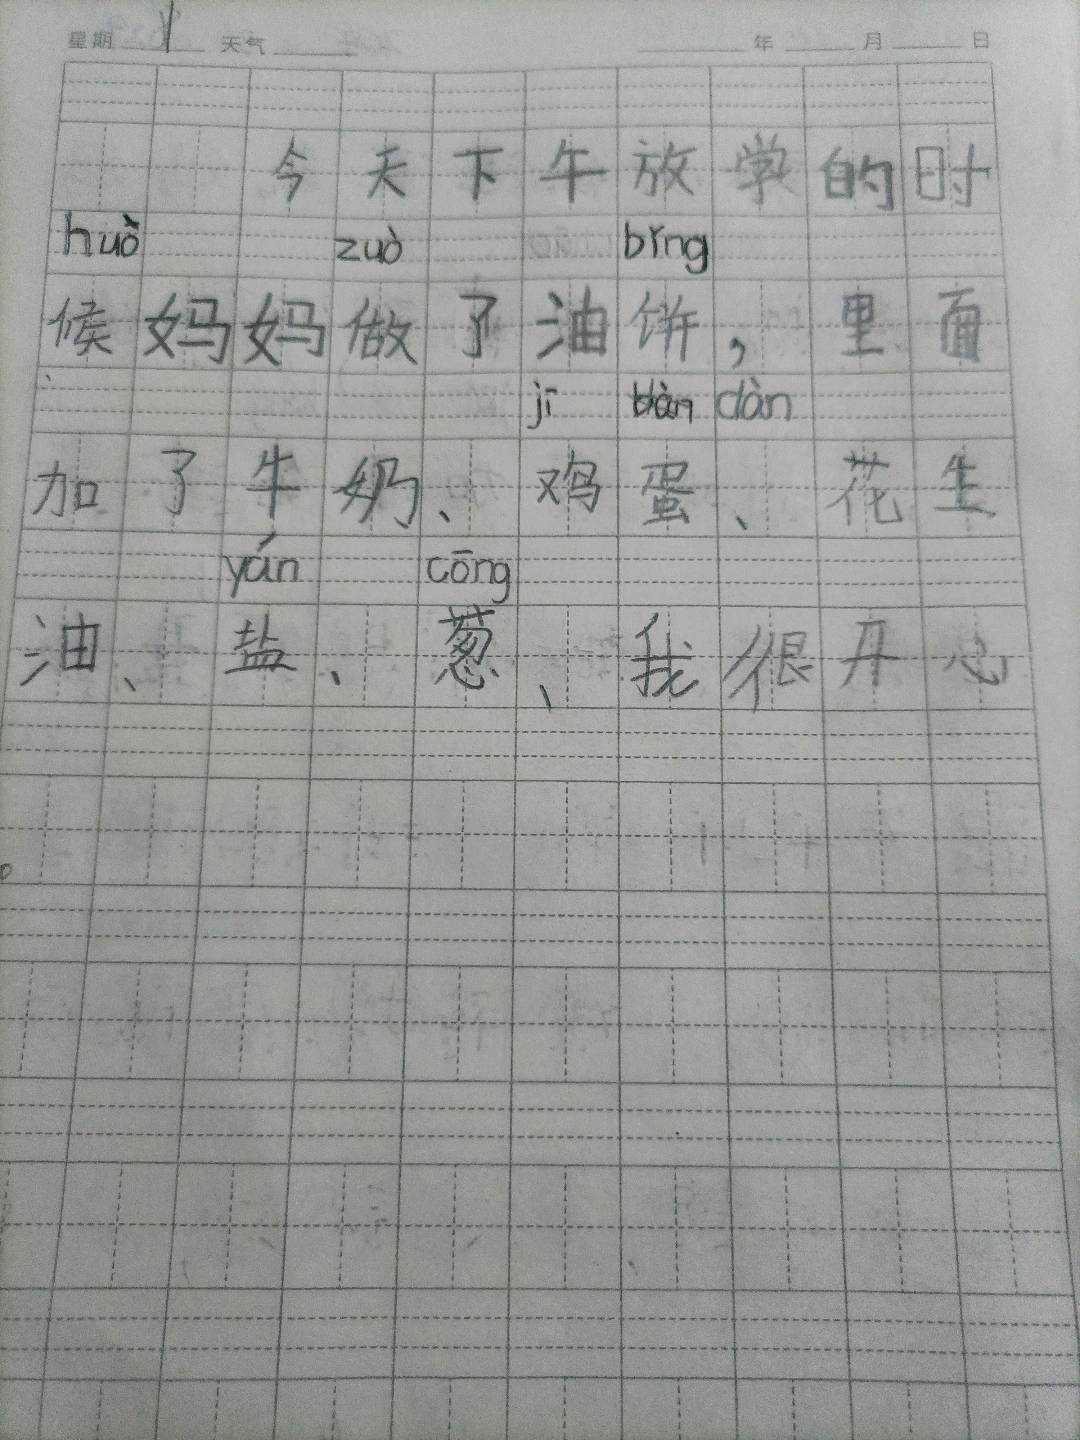 星期 天气 年 月 日
今天下午放学的时
huò zuò bǐng
候妈妈做了油饼，里面
jī dàn
加了牛奶、鸡蛋、花生
yán cōng
油、盐、葱、我很开心
。